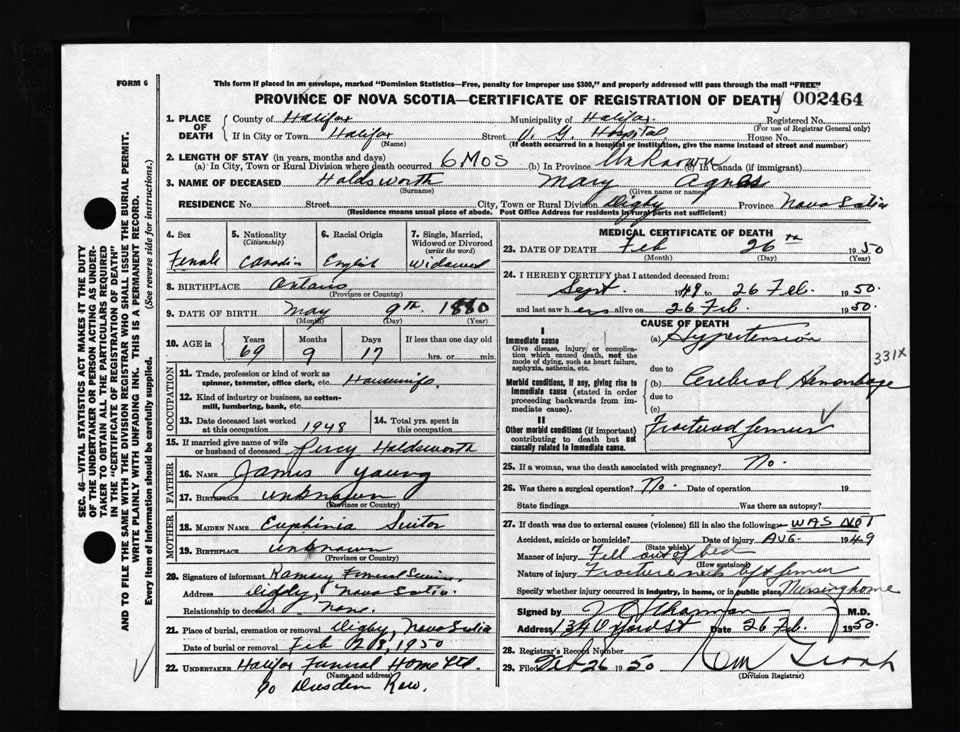 FORM 6
This form if placed in an envelope, marked "Dominion Statistics—Free, penalty for improper use $300," and properly addressed will pass through the mail "FREE"
PROVINCE OF NOVA SCOTIA—CERTIFICATE OF REGISTRATION OF DEATH 002464
1. PLACE OF DEATH
County of Halifax Municipality of Halifax. Registered No.
(For use of Registrar General only)
If in City or Town Halifax Street V. G. Hospital House No.
(Name) (If death occurred in a hospital or institution, give the name instead of street and number)
2. LENGTH OF STAY (in years, months and days)
(a) In City, Town or Rural Division where death occurred 6 MOS (b) In Province Unknown (c) In Canada (if immigrant)
3. NAME OF DECEASED Holdsworth Mary Agnes
(Surname) (Given name or names)
RESIDENCE No. Street City, Town or Rural Division Digby Province Nova Scotia
(Residence means usual place of abode. Post Office Address for residents in rural parts not sufficient)
4. Sex
Female
5. Nationality
(Citizenship)
Canadin
6. Racial Origin
English
7. Single, Married, Widowed or Divorced
(write the word)
Widowed
8. BIRTHPLACE Ontario
(Province or Country)
9. DATE OF BIRTH May 9th 1880
(Month) (Day) (Year)
10. AGE in Years Months Days If less than one day old
69 9 17 hrs. or min.
OCCUPATION
11. Trade, profession or kind of work as
spinner, teamster, office clerk, etc. Housewife.
12. Kind of industry or business, as cotton-
mill, lumbering, bank, etc.
13. Date deceased last worked
at this occupation 1948
14. Total yrs. spent in
this occupation
15. If married give name of wife
or husband of deceased Percy Holdsworth
FATHER
16. NAME James Young
17. BIRTHPLACE unknown
(Province or Country)
MOTHER
18. MAIDEN NAME Euphinia Suitor
19. BIRTHPLACE unknown
(Province or Country)
20. Signature of informant Ramsay Funeral Service,
Address Digby, Nova Scotia.
Relationship to deceased None.
21. Place of burial, cremation or removal Digby, Nova Scotia
Date of burial or removal Feb 28, 1950
22. UNDERTAKER Halifax Funeral Home Ltd.
(Name and address)
Dresden Row.
MEDICAL CERTIFICATE OF DEATH
23. DATE OF DEATH Feb 26th 1950
(Month) (Day) (Year)
24. I HEREBY CERTIFY that I attended deceased from:
Sept. 1949 to 26 Feb. 1950.
and last saw her alive on 26 Feb. 1950.
CAUSE OF DEATH
I
Immediate cause
Give disease, injury or complication which caused death, not the mode of dying, such as heart failure, asphyxia, asthenia, etc.
(a) Hypertension
due to
331X
Morbid conditions, if any, giving rise to immediate cause (stated in order proceeding backwards from immediate cause).
(b) Cerebral Hemorrhage
due to
(c)
II
Other morbid conditions (if important) contributing to death but not causally related to immediate cause.
Fractured femur
25. If a woman, was the death associated with pregnancy? No.
26. Was there a surgical operation? No. Date of operation 19
State findings Was there an autopsy?
27. If death was due to external causes (violence) fill in also the following: WAS NOT
Accident, suicide or homicide? Date of injury AUG. 1949
(State which)
Manner of injury Fell out of bed
(How sustained)
Nature of injury Fracture neck left femur
Specify whether injury occurred in industry, in home, or in public place Nursing home
Signed by M.D.
Address Date 26 Feb. 1950.
28. Registrar's Record Number
29. Filed Feb 26 1950
(Division Registrar)
SEC. 46—VITAL STATISTICS ACT MAKES IT THE DUTY
OF THE UNDERTAKER OR PERSON ACTING AS UNDER-
TAKER TO OBTAIN ALL THE PARTICULARS REQUIRED
IN THE "CERTIFICATE OF REGISTRATION OF DEATH"
AND TO FILE THE SAME WITH THE DIVISION REGISTRAR WHO SHALL ISSUE THE BURIAL PERMIT.
WRITE PLAINLY WITH UNFADING INK. THIS IS A PERMANENT RECORD.
Every item of Information should be carefully supplied. (See reverse side for instructions.)